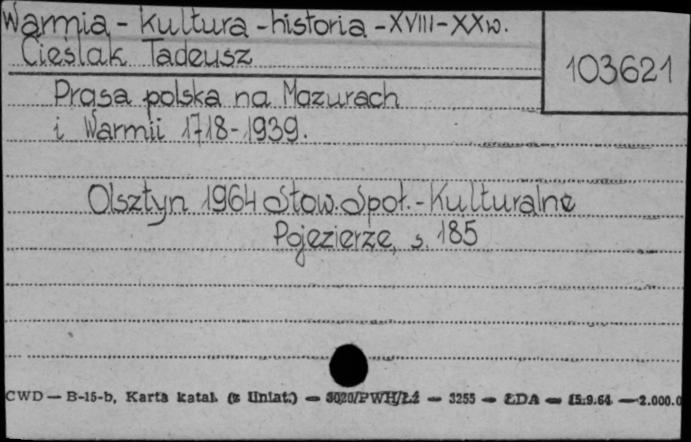 Warmia - kultura - historia - XVIII - XX w.
Cieślak Tadeusz
103621
Prasa polska na Mazurach
i Warmii 1718 - 1939.
Olsztyn 1964 Stow. Społ. - Kulturalne
Pojezierze, s. 185
CWD — B-15-b, Karta katal. (z liniat.) — 3020/PWH/Łż — 3255 — ŁDA — 15.9.64 — 2.000.0